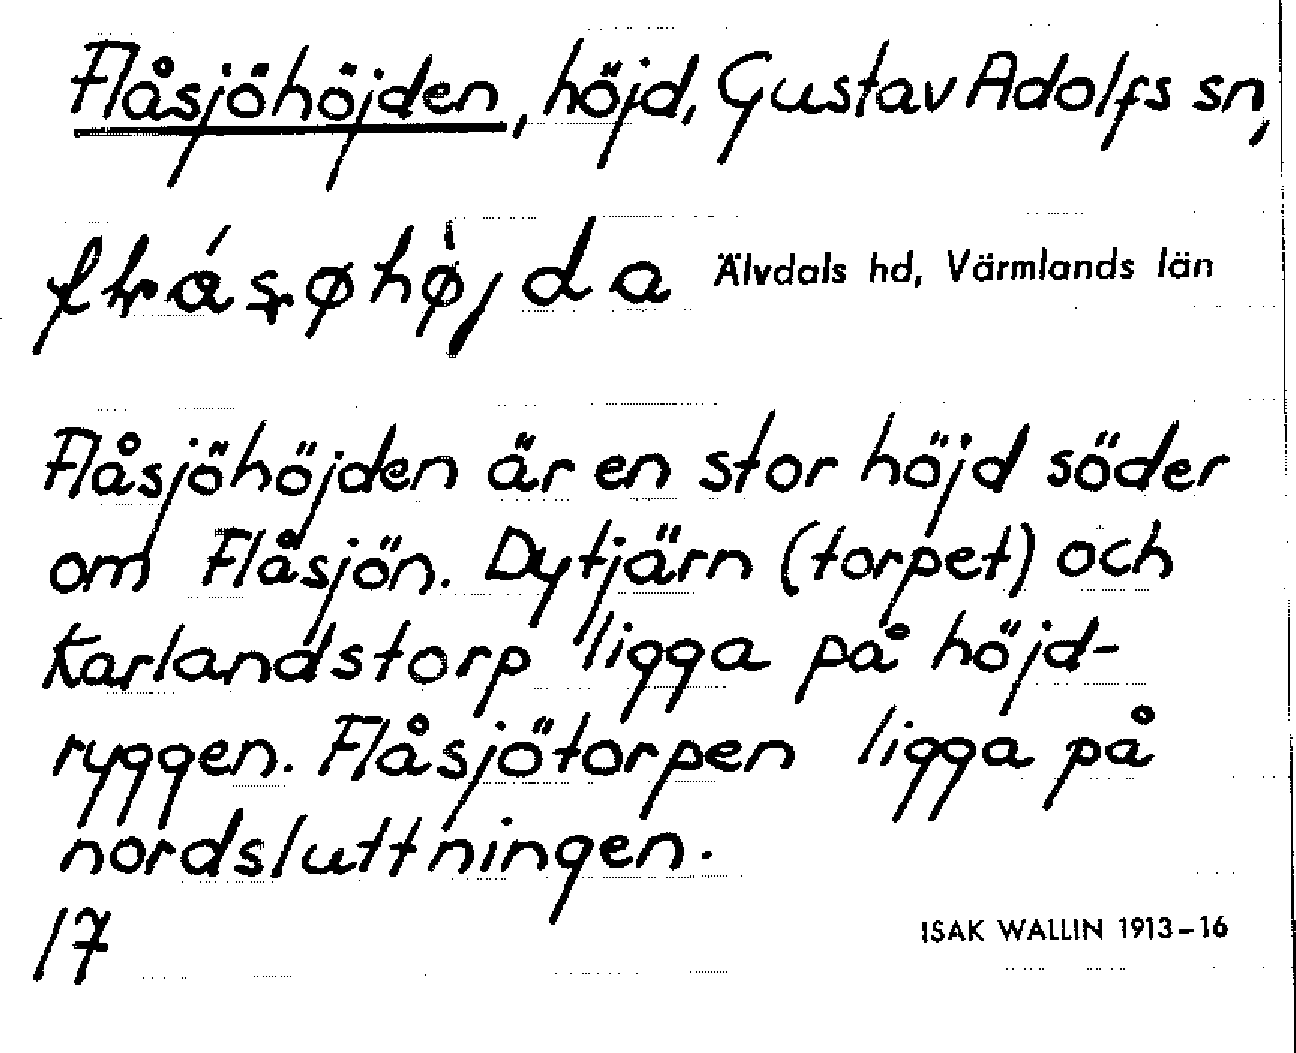 Flåsjöhöjden, höjd, Gustav Adolfs sn,
Älvdals hd, Värmlands län
Flåsjöhöjden är en stor höjd söder
om Flåsjön. Dytjärn (torpet) och
Karlandstorp ligga på höjd-
ryggen. Flåsjötorpen ligga på
nordsluttningen.
17
ISAK WALLIN 1913-16